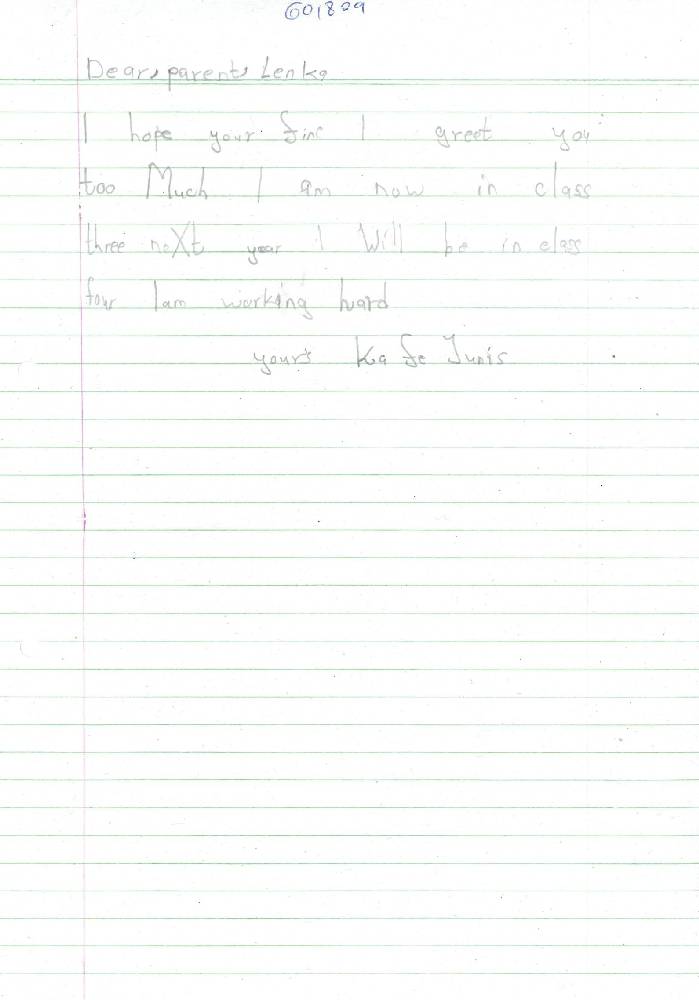 601829
Dear, parents Lenka
I hope your fine I greet you
too Much I am now in class
three neXt year I Will be in class
four I am working hard
yours Ka fe Junis